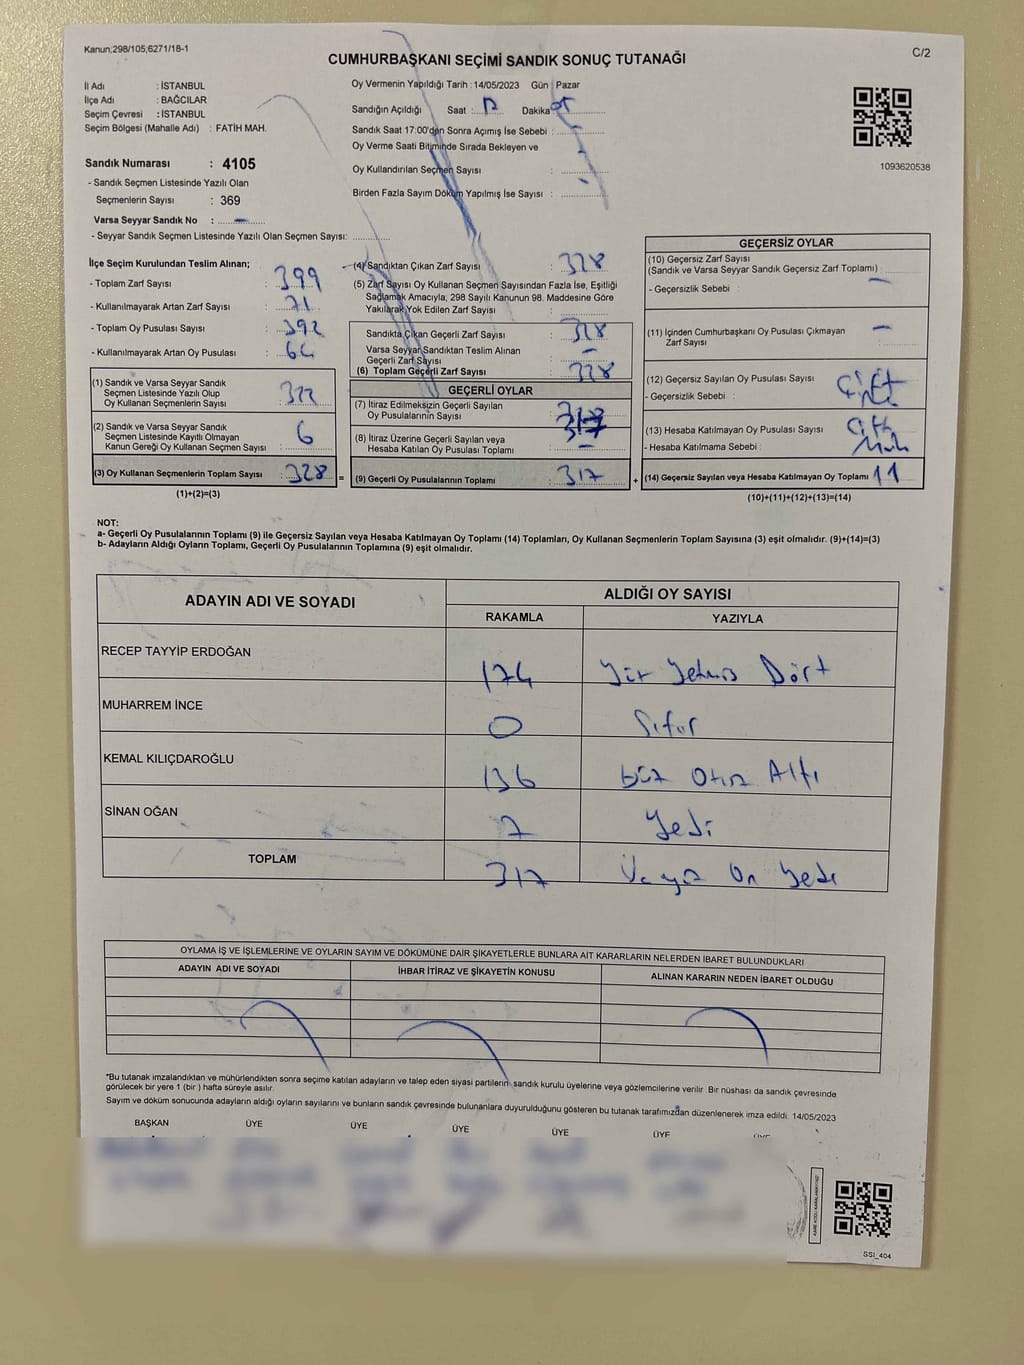 Kanun;298/105;6271/18-1
C/2
CUMHURBAŞKANI SEÇİMİ SANDIK SONUÇ TUTANAĞI
İl Adı : İSTANBUL
İlçe Adı : BAĞCILAR
Seçim Çevresi : İSTANBUL
Seçim Bölgesi (Mahalle Adı) : FATİH MAH.
Sandık Numarası : 4105
- Sandık Seçmen Listesinde Yazılı Olan
Seçmenlerin Sayısı : 369
Varsa Seyyar Sandık No : -
- Seyyar Sandık Seçmen Listesinde Yazılı Olan Seçmen Sayısı:
Oy Vermenin Yapıldığı Tarih :14/05/2023 Gün : Pazar
Sandığın Açıldığı Saat : 17 Dakika 05
Sandık Saat 17:00'den Sonra Açımış İse Sebebi : -
Oy Verme Saati Bitiminde Sırada Bekleyen ve
Oy Kullandırılan Seçmen Sayısı :
Birden Fazla Sayım Döküm Yapılmış İse Sayısı : -
1093620538
İlçe Seçim Kurulundan Teslim Alınan;
- Toplam Zarf Sayısı : 399
- Kullanılmayarak Artan Zarf Sayısı : 71
- Toplam Oy Pusulası Sayısı : 392
- Kullanılmayarak Artan Oy Pusulası : 64
(1) Sandık ve Varsa Seyyar Sandık
Seçmen Listesinde Yazılı Olup
Oy Kullanan Seçmenlerin Sayısı : 322
(2) Sandık ve Varsa Seyyar Sandık
Seçmen Listesinde Kayıtlı Olmayan
Kanun Gereği Oy Kullanan Seçmen Sayısı : 6
(3) Oy Kullanan Seçmenlerin Toplam Sayısı : 328
(1)+(2)=(3)
(4) Sandıktan Çıkan Zarf Sayısı : 328
(5) Zarf Sayısı Oy Kullanan Seçmen Sayısından Fazla İse, Eşitliği
Sağlamak Amacıyla; 298 Sayılı Kanunun 98. Maddesine Göre
Yakılarak Yok Edilen Zarf Sayısı :
Sandıkta Çıkan Geçerli Zarf Sayısı : 328
Varsa Seyyar Sandıktan Teslim Alınan
Geçerli Zarf Sayısı : -
(6) Toplam Geçerli Zarf Sayısı : 328
GEÇERLİ OYLAR
(7) İtiraz Edilmeksizin Geçerli Sayılan
Oy Pusulalarının Sayısı : 317
(8) İtiraz Üzerine Geçerli Sayılan veya
Hesaba Katılan Oy Pusulası Toplamı : -
= (9) Geçerli Oy Pusulalarının Toplamı : 317 +
GEÇERSİZ OYLAR
(10) Geçersiz Zarf Sayısı
(Sandık ve Varsa Seyyar Sandık Geçersiz Zarf Toplamı)
- Geçersizlik Sebebi : -
(11) İçinden Cumhurbaşkanı Oy Pusulası Çıkmayan
Zarf Sayısı : -
(12) Geçersiz Sayılan Oy Pusulası Sayısı :
- Geçersizlik Sebebi : Çift
(13) Hesaba Katılmayan Oy Pusulası Sayısı : Çift
- Hesaba Katılmama Sebebi :
(14) Geçersiz Sayılan veya Hesaba Katılmayan Oy Toplamı 11
(10)+(11)+(12)+(13)=(14)
NOT:
a- Geçerli Oy Pusulalarının Toplamı (9) ile Geçersiz Sayılan veya Hesaba Katılmayan Oy Toplamı (14) Toplamları, Oy Kullanan Seçmenlerin Toplam Sayısına (3) eşit olmalıdır. (9)+(14)=(3)
b- Adayların Aldığı Oyların Toplamı, Geçerli Oy Pusulalarının Toplamına (9) eşit olmalıdır.
ADAYIN ADI VE SOYADI ALDIĞI OY SAYISI
RAKAMLA YAZIYLA
RECEP TAYYİP ERDOĞAN 174 Yüz Yetmiş Dört
MUHARREM İNCE 0 Sıfır
KEMAL KILIÇDAROĞLU 136 Yüz Otuz Altı
SİNAN OĞAN 7 Yedi
TOPLAM 317 Üç yüz On Yedi
OYLAMA İŞ VE İŞLEMLERİNE VE OYLARIN SAYIM VE DÖKÜMÜNE DAİR ŞİKAYETLERLE BUNLARA AİT KARARLARIN NELERDEN İBARET BULUNDUKLARI
ADAYIN ADI VE SOYADI İHBAR İTİRAZ VE ŞİKAYETİN KONUSU ALINAN KARARIN NEDEN İBARET OLDUĞU
*Bu tutanak imzalandıktan ve mühürlendikten sonra seçime katılan adayların ve talep eden siyasi partilerin sandık kurulu üyelerine veya gözlemcilerine verilir. Bir nüshası da sandık çevresinde
görülecek bir yere 1 (bir) hafta süreyle asılır.
Sayım ve döküm sonucunda adayların aldığı oyların sayılarını ve bunların sandık çevresinde bulunanlara duyurulduğunu gösteren bu tutanak tarafımızdan düzenlenerek imza edildi. 14/05/2023
BAŞKAN ÜYE ÜYE ÜYE ÜYE ÜYE ÜYE
SSI_404